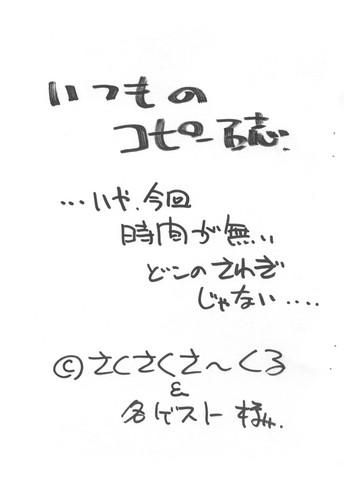 いつもの
コピー誌.
...いや、今回
時間が無い
どこのさわぎ
じゃない....
©さくさくさ〜くる
&
各ゲスト様.